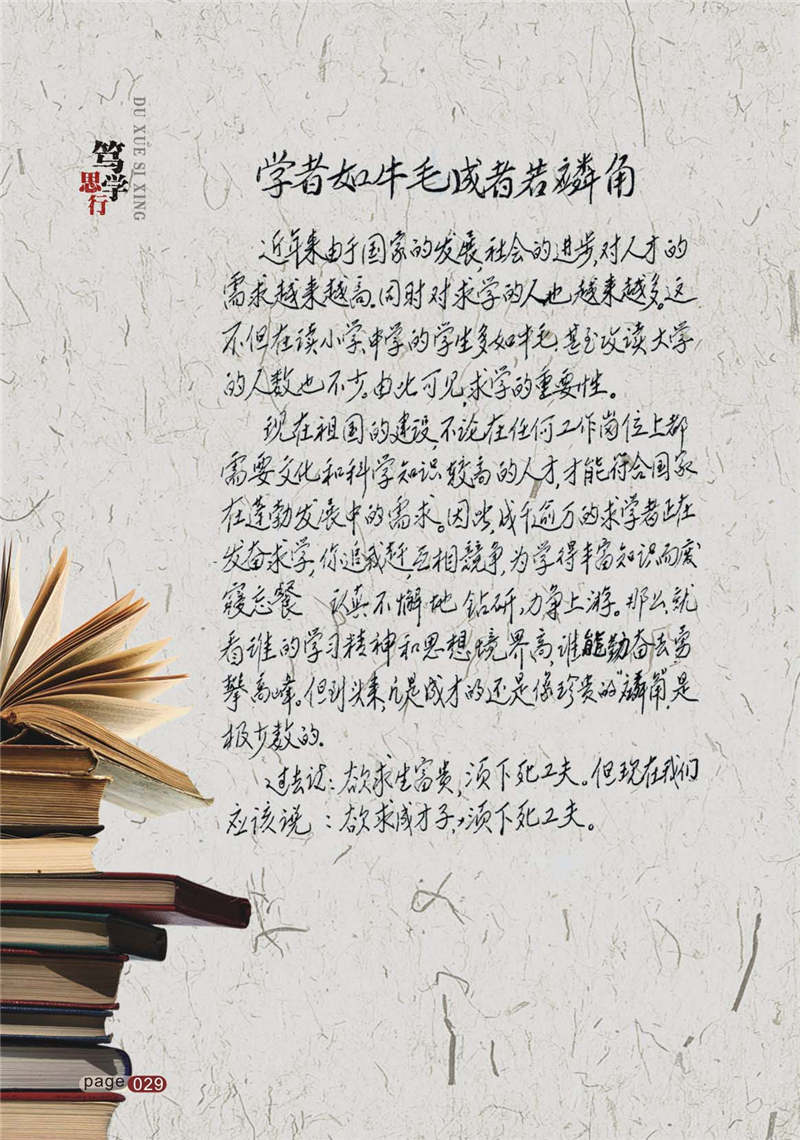 DU XUE SI XING
笃学
思行
学者如牛毛成者若麟角
近年来由于国家的发展,社会的进步,对人才的
需求越来越高.同时对求学的人也越来越多。这
不但在读小学、中学的学生多如牛毛.甚至改读大学
的人数也不少.由此可见,求学的重要性。
现在祖国的建设,不论在任何工作岗位上都
需要文化和科学知识较高的人才,才能符合国家
在蓬勃发展中的需求。因此,成千逾万的求学者正在
发奋求学,你追我赶,互相竞争,为学得丰富知识而废
寝忘餐 认真不懈地钻研,力争上游。那么,就
看谁的学习精神和思想境界高,谁能勤奋去勇
攀高峰。但到头来,凡是成才的还是像珍贵的“麟角”,是
极少数的.
过去说:欲求生富贵,须下死工夫。但现在我们
应该说:欲求成才子,须下死工夫。
page 029